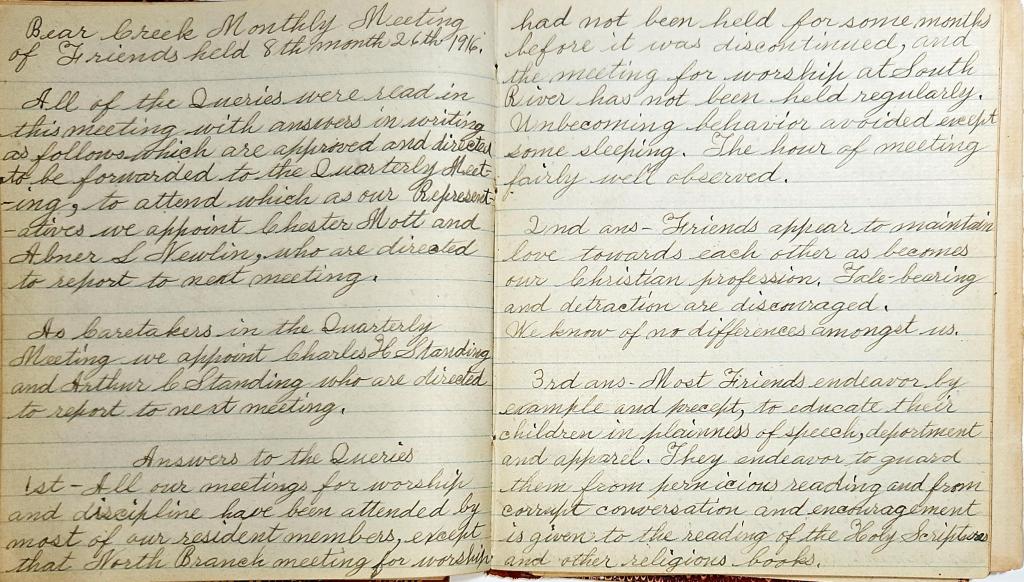 Bear Creek Monthly Meeting
of Friends held 8th month 26th 1916.
All of the Queries were read in
this meeting with answers in writing
as follows which are approved and directed
to be forwarded to the Quarterly Meet-
-ing, to attend which as our Represent-
-atives we appoint Chester Mott and
Abner L Newlin, who are directed
to report to next meeting.
As Caretakers in the Quarterly
Meeting we appoint Charles H Standing
and Arthur C Standing who are directed
to report to next meeting.
Answers to the Queries
1st - All our meetings for worship
and discipline have been attended by
most of our resident members, except
that North Branch meeting for worship
had not been held for some months
before it was discontinued, and
the meeting for worship at South
River has not been held regularly.
Unbecoming behavior avoided except
some sleeping. The hour of meeting
fairly well observed.
2nd ans - Friends appear to maintain
love towards each other as becomes
our Christian profession. Tale-bearing
and detraction are discouraged.
We know of no differences amongst us.
3rd ans - Most Friends endeavor, by
example and precept, to educate their
children in plainness of speech, deportment
and apparel. They endeavor to guard
them from pernicious reading and from
corrupt conversation and encouragement
is given to the reading of the Holy Scriptures
and other religious books.